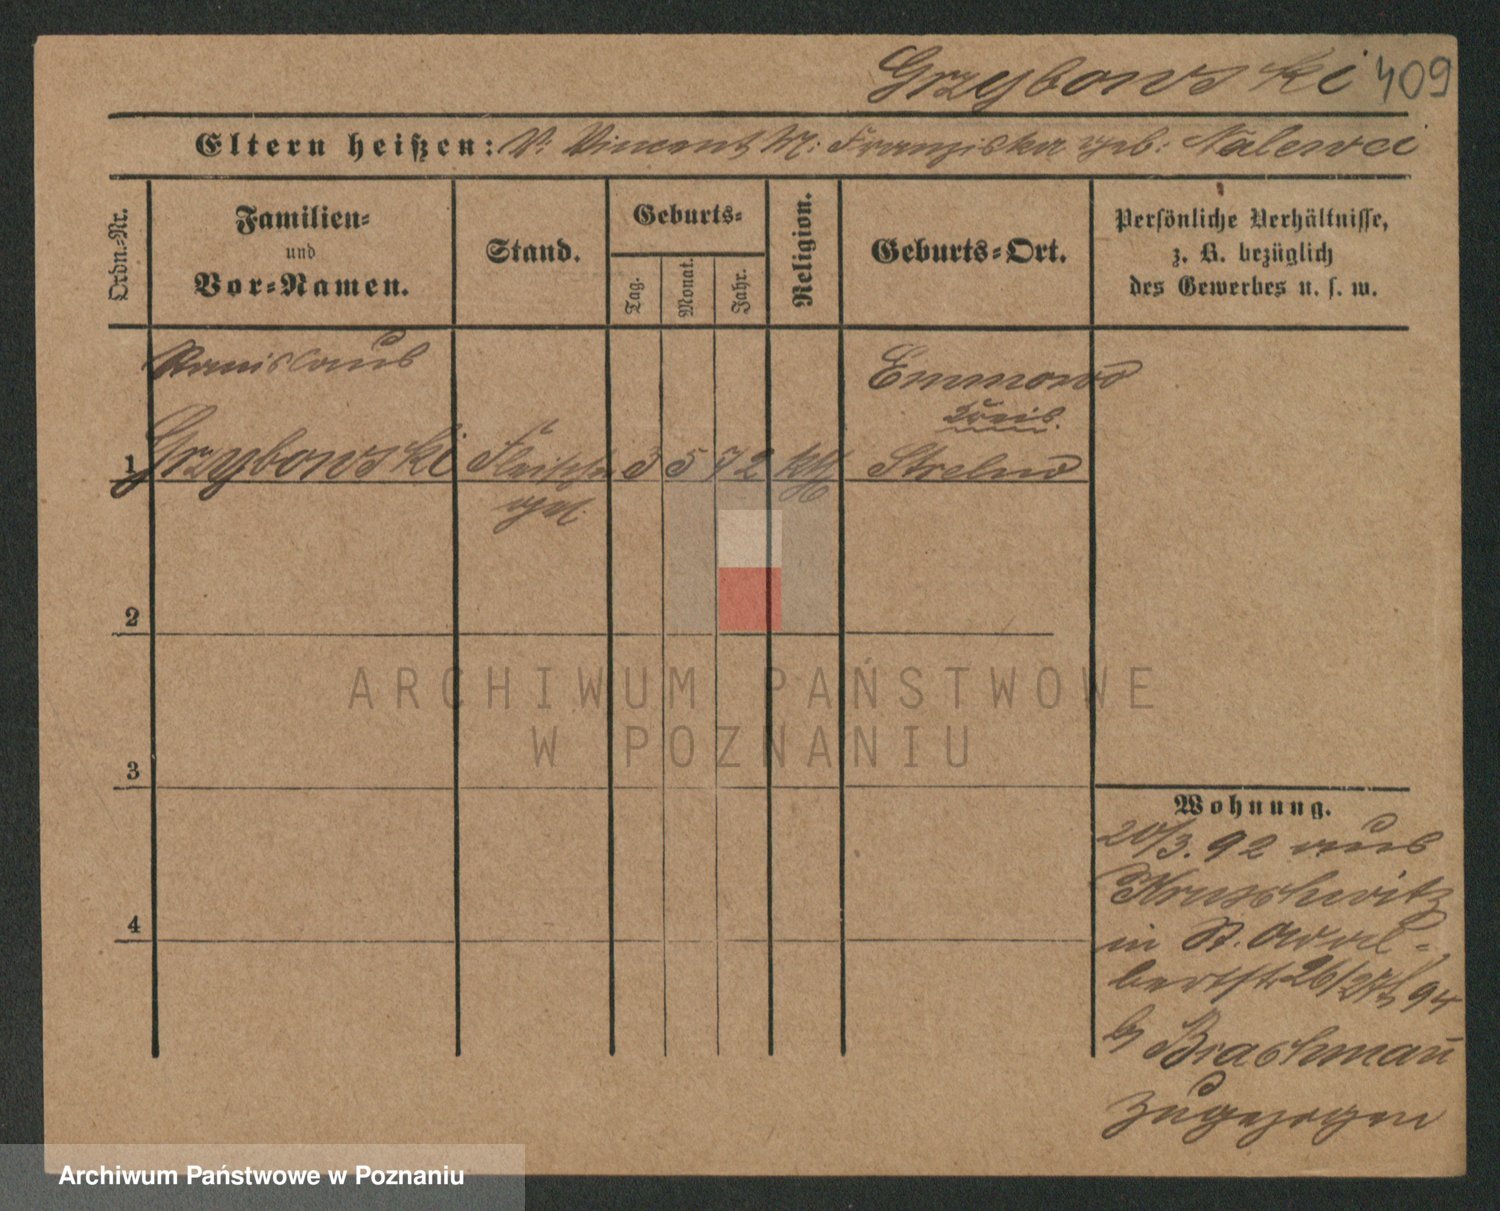 Grzybowski 409
Eltern heißen: V: Vincent M: Franziska geb: Nalewei
Ordn.-Nr.
Familien-
und
Vor-Namen.
Stand.
Geburts-
Tag.
Monat.
Jahr.
Religion.
Geburts-Ort.
Persönliche Verhältnisse,
z. B. bezüglich
des Gewerbes u. s. w.
Stanislaus
Emmowo
Kreis
1 Grzybowski Fleischer 3 5 72 kth Strelno
gel.
2
3
4
Wohnung.
20/3. 92 aus
Kruschwitz
in St. Adal-
bertstr 26/27 94
b/ Braschmann
zugezogen
ARCHIWUM PAŃSTWOWE
W POZNANIU
Archiwum Państwowe w Poznaniu